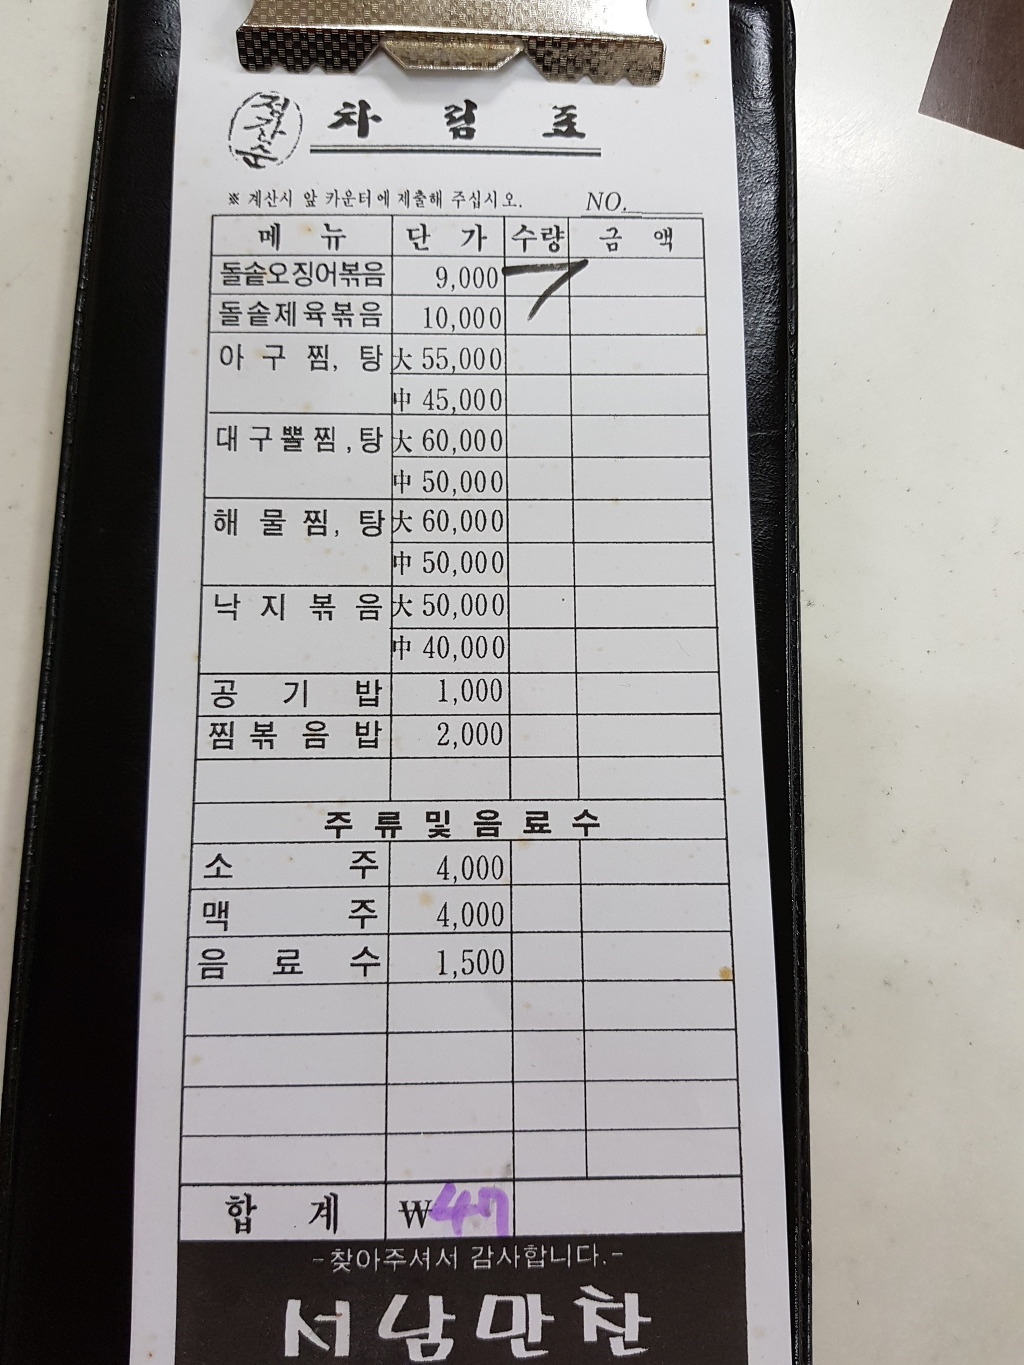 정갈순
차림표
※ 계산시 앞 카운터에 제출해 주십시오.
NO.
메뉴 단가 수량 금액
돌솥오징어볶음 9,000
돌솥제육볶음 10,000
아구찜, 탕 大 55,000
中 45,000
대구뽈찜, 탕 大 60,000
中 50,000
해물찜, 탕 大 60,000
中 50,000
낙지볶음 大 50,000
中 40,000
공기밥 1,000
찜볶음밥 2,000
주류및음료수
소주 4,000
맥주 4,000
음료수 1,500
합계 ₩47
-찾아주셔서 감사합니다.-
서남만찬